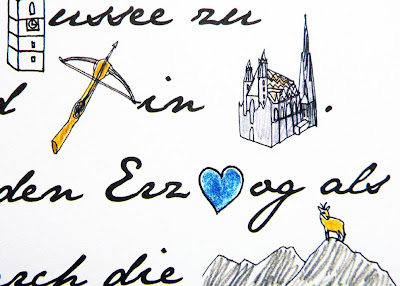 ussee zu
d in .
den Erz og als
rch die